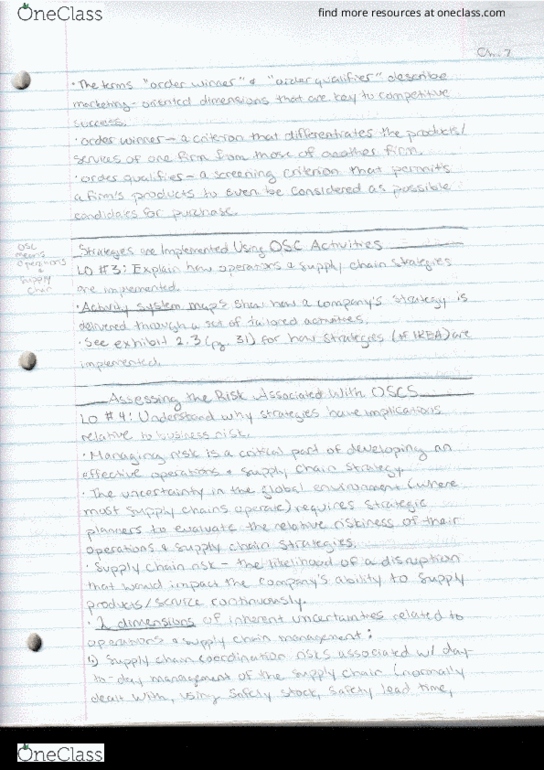 OneClass
find more resources at oneclass.com
Ch. 2
· The terms "order winner" & "order qualifiers" describe
marketing-oriented dimensions that are key to competitive
success.
· order winner - a criterion that differentiates the products/
services of one firm from those of another firm.
· order qualifies - a screening criterion that permits
a firm's products to even be considered as possible
candidates for purchase.
OSC
means
operations
&
supply
chain
Strategies are Implemented Using OSC Activities
LO #3: Explain how operations & supply chain strategies
are implemented.
· Activity system maps show how a company's strategy is
delivered through a set of tailored activities.
· See exhibit 2.3 (pg. 31) for how strategies (of IKEA) are
implemented.
Assessing the Risk Associated With OSCS
LO #4: Understand why strategies have implications
relative to business risk.
· Managing risk is a critical part of developing an
effective operations & supply chain strategy
· The uncertainty in the global environment (where
most supply chains operate) requires strategic
planners to evaluate the relative riskiness of their
operations & supply chain strategies.
· Supply chain risk - the likelihood of a disruption
that would impact the company's ability to supply
products/service continuously.
· 2 dimensions of inherent uncertainties related to
operations & supply chain management:
1) Supply chain coordination risks associated w/ day-
to-day management of the supply chain (normally
dealt with, using safety stock, safety lead time,
OneClass